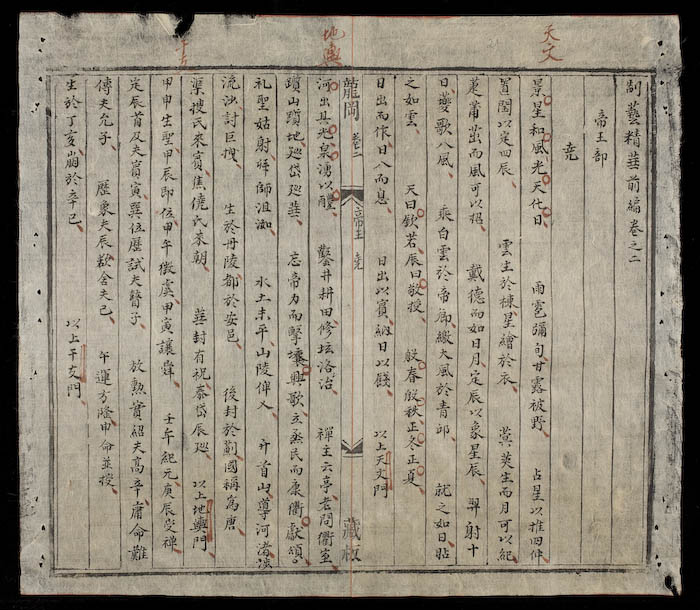 天文
地輿
干支
制藝精華前編卷之二
帝王部
堯
景星和風光天化日 雨雹彌旬甘露被野 占星以推四仲
置閏以定四辰 雲生於棟星繪於衣 蓂莢生而月可以紀
萐莆茁而風可以招 戴德而如日月定辰以象星辰 羿射十
日夔歌八風 乘白雲於帝鄉繳大風於青邱 就之如日瞻
之如雲 天曰欽若辰曰敬授 殷春殷秋正冬正夏
日出而作日入而息 日出以賓納日以餞 以上天文門
龍岡 卷二 帝王 堯 藏板
河出其光泉湧以醴 鑿井耕田修坛洛汭 禪主六亭老問衢室
躓山躓地巡岱巡華 忘帝力而擊壤興歌立烝民而康衢獻頌
礼聖姑射拜師沮洳 水土未平山陵俾乂 升首山導河渚
流洫討巨搜 生於丹陵都於安邑 後封於剻國稱為唐
渠搜氏來賓焦僥氏來朝 華封有祝泰岱辰巡 以上地輿門
甲申生聖甲辰即位甲午徵虞甲寅讓舜 壬年紀元庚辰受禪
定辰首及夫賓寅巽位歷試夫瞽子 放勳實紹夫高辛庸命難
傳夫允子 歷象夫辰欽舍夫己 午運方隆申命並授
生於丁亥崩於辛巳 以上干支門